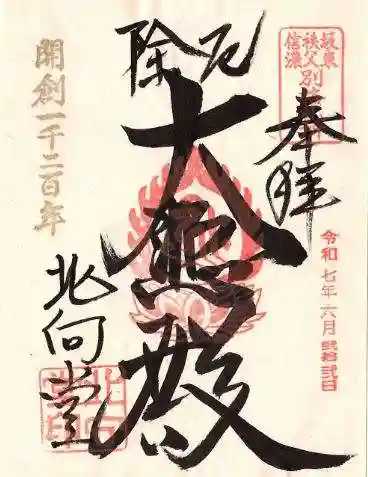 坂東
秩父
信濃
奉拝
令和七年六月弐拾弐日
厄除
大悲殿
北向堂
開創一千二百年